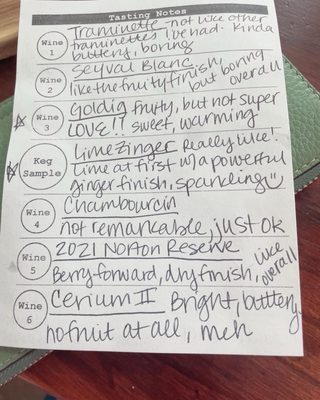 Tasting Notes
Wine 1
Traminette - not like other
traminettes I've had. Kinda
buttery, boring
Wine 2
Seyval Blanc
like the fruity finish, boring
but overall
Wine 3
Goldig fruity, but not super
LOVE!! sweet, warming
Keg Sample
Limezinger Really like!
Lime at first w/ a powerful
ginger finish, sparkling
Wine 4
Chambourcin
not remarkable, just ok
Wine 5
2021 Norton Reserve
Berry forward, dry finish, like
overall
Wine 6
Cerium II Bright, buttery
no fruit at all, meh